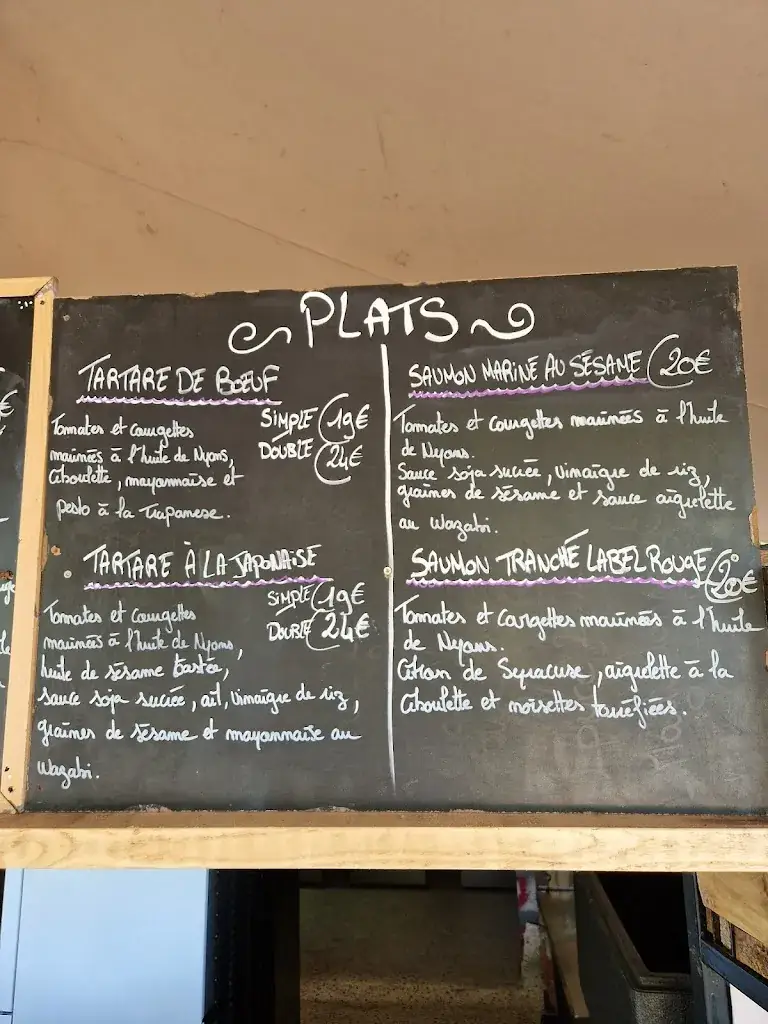 PLATS
TARTARE DE BOEUF
SIMPLE 19€
DOUBLE 24€
Tomates et courgettes
marinées à l'huile de Nyons,
ciboulette, mayonnaise et
pesto à la Trapanese.
TARTARE À LA JAPONAISE
SIMPLE 19€
DOUBLE 24€
Tomates et courgettes
marinées à l'huile de Nyons,
huile de sésame
sauce soja sucrée, ail, vinaigre de riz,
graines de sésame et mayonnaise au
Wazabi.
SAUMON MARINÉ AU SÉSAME 20€
Tomates et courgettes marinées à l'huile
de Nyons.
Sauce soja sucrée, vinaigre de riz,
graines de sésame et sauce aigrelette
au Wazabi.
SAUMON TRANCHÉ LABEL ROUGE 20€
Tomates et courgettes marinées à l'huile
de Nyons.
Citron de Syracuse, aigrelette à la
ciboulette et noisettes torréfiées.